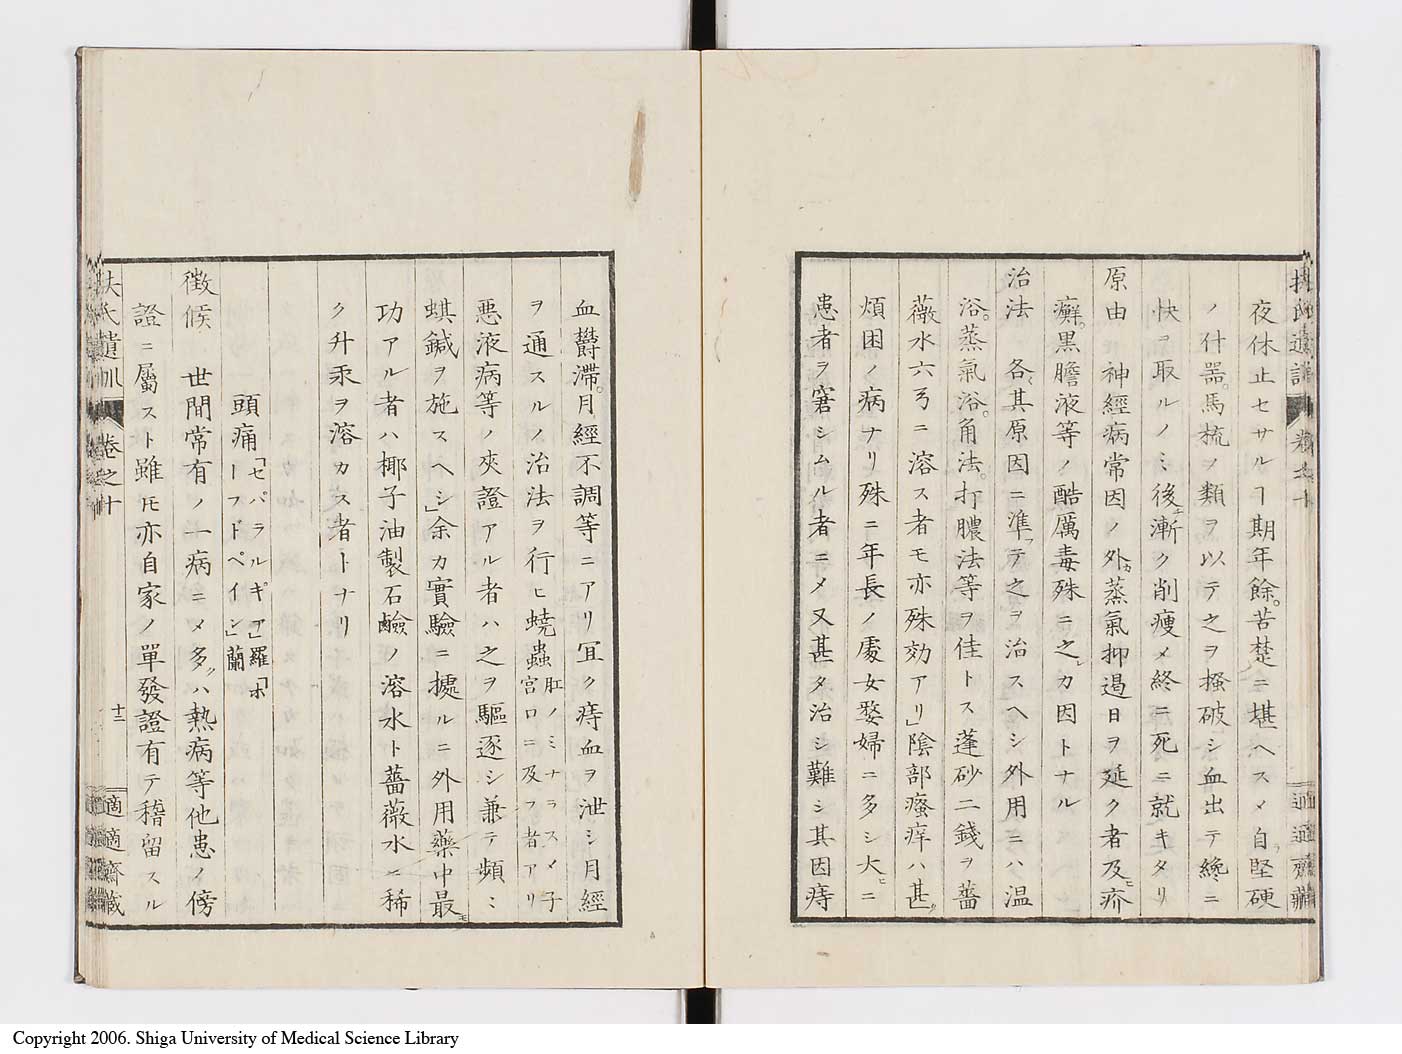 夜休止セサルヿ期年餘。苦楚ニ堪ヘスメ自ラ堅硬
ノ什器。馬梳ヲ類ヲ以テ之ヲ搔破シ血出テ纔ニ
快ヲ取ルノミ後ニ漸ク削瘦メ終ニ死ニ就キタリ
原由 神經病常因ノ外カ蒸氣抑遏日ヲ延ク者及ヒ疥
癬。黒膽液等ノ酷厲毒殊ニ之レカ因トナル
治法 各〻其原因ニ準フテ之ヲ治スヘシ外用ニハ温
浴。蒸氣浴。角法。打膿法等ヲ佳トス蓬砂二錢ヲ薔
薇水六弓ニ溶ス者モ亦殊効アリ」陰部瘙痒ハ甚ク
煩困ノ病ナリ殊ニ年長ノ處女婺婦ニ多シ大ヒニ
患者ヲ窘シムル者ニメ又甚タ治シ難シ其因痔
扶氏遺訓 卷之十 適適齋藏
血欝滯。月經不調等ニアリ冝ク痔血ヲ泄シ月經
ヲ通スルノ治法ヲ行ヒ蟯蟲肛ノミナラスメ子宮口ニ及フ者アリ
惡液病等ノ夾證アル者ハ之ヲ驅逐シ兼テ頻ミ
蜞鍼ヲ施スヘシ」余カ實驗ニ據ルニ外用藥中最モ
功アル者ハ椰子油製石鹼ノ溶水ト薔薇水ニ稀
ク升汞ヲ溶カス者トナリ
頭痛「セパラルギア」羅「ホーフドペイン」蘭
徴候 世間常有ノ一病ニメ多クハ熱病等他患ノ傍
證ニ屬スト雖𪜈亦自家ノ單發證有テ稽留スル
扶氏遺訓 卷之十 十二 適適齋藏
Copyright 2006. Shiga University of Medical Science Library